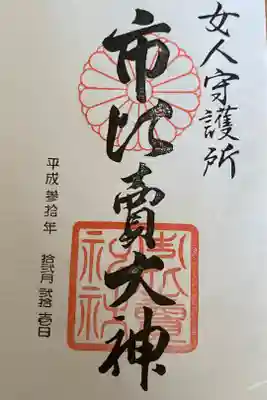 女人守護所
市比賣大神
平成参拾年 拾弐月 弐拾壱日